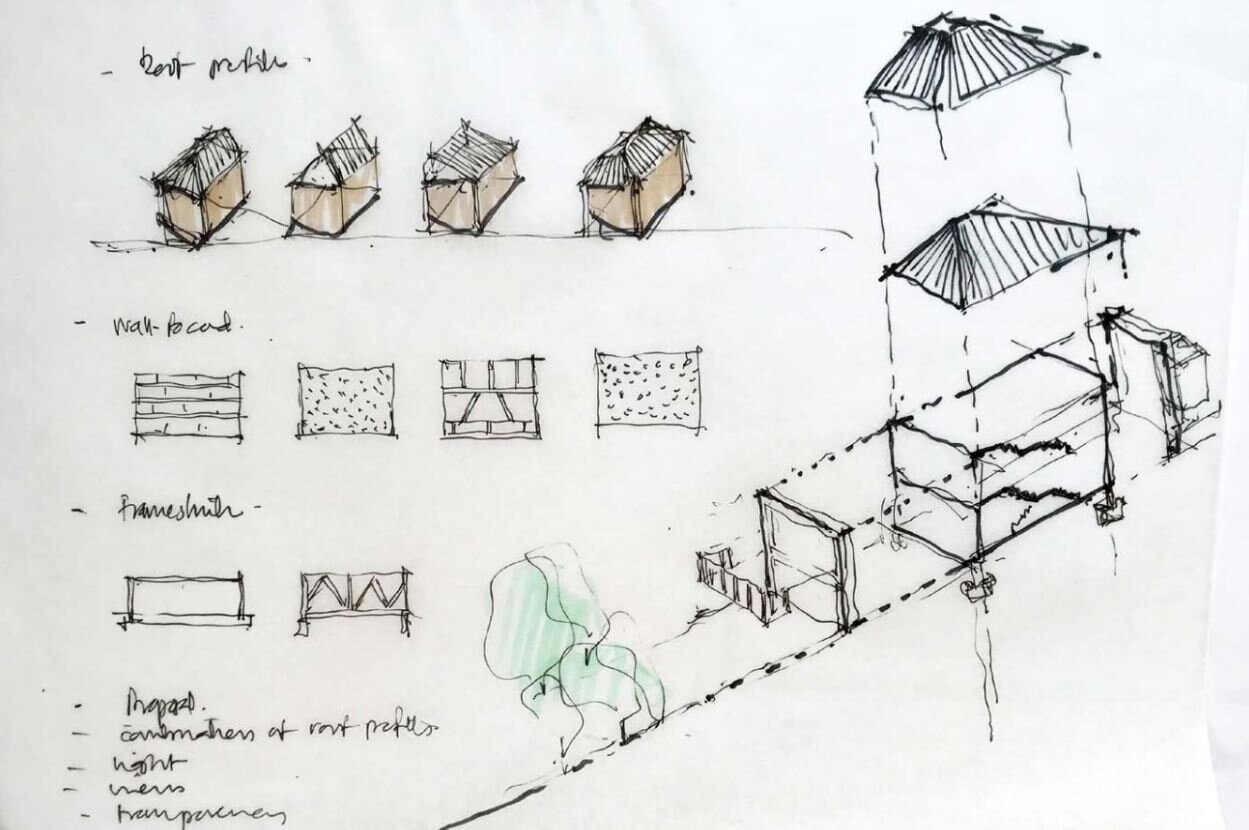 - Roof profiles -
- Wall facad.
- Framestruth -
- Propost.
- combinations of roof profiles
- light
- views
- transparency